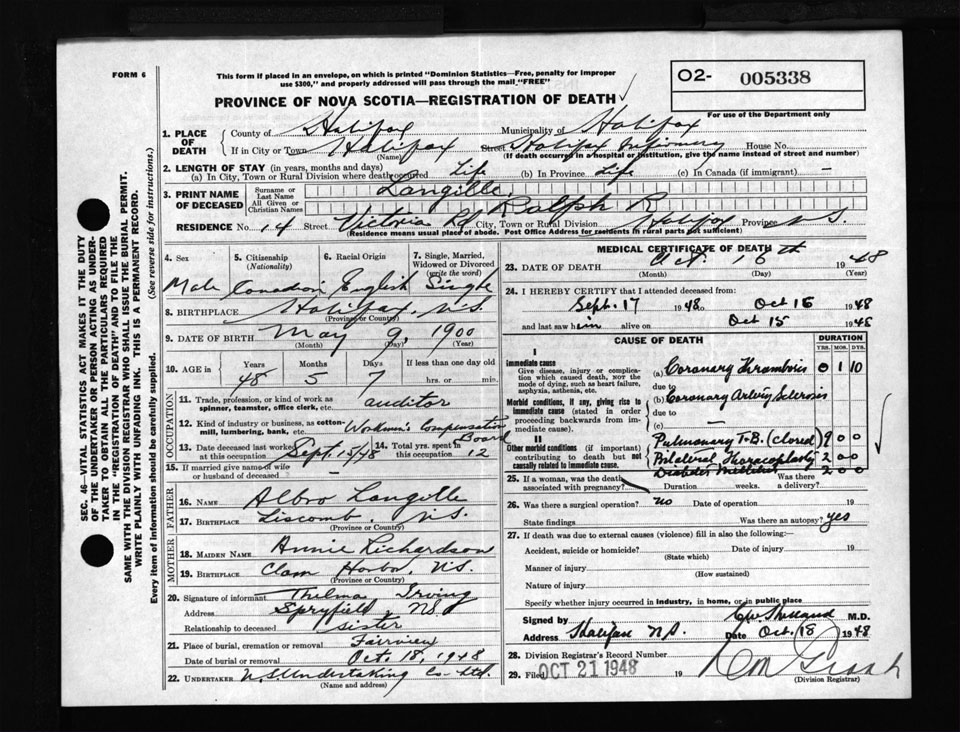 FORM 6
This form if placed in an envelope, on which is printed "Dominion Statistics—Free, penalty for improper
use $300," and properly addressed will pass through the mail "FREE"
O2- 005338
For use of the Department only
PROVINCE OF NOVA SCOTIA—REGISTRATION OF DEATH
1. PLACE OF DEATH
County of Halifax Municipality of Halifax
If in City or Town Halifax Street Halifax Infirmary House No.
(Name) (If death occurred in a hospital or institution, give the name instead of street and number)
2. LENGTH OF STAY (in years, months and days)
(a) In City, Town or Rural Division where death occurred Life (b) In Province Life (c) In Canada (if immigrant) —
3. PRINT NAME OF DECEASED
Surname or Last Name Langille
All Given or Christian Names Ralph R
RESIDENCE No. 14 Street Victoria Rd City, Town or Rural Division Halifax Province N.S.
(Residence means usual place of abode. Post Office Address for residents in rural parts not sufficient)
4. Sex Male
5. Citizenship (Nationality) Canadian
6. Racial Origin English
7. Single, Married, Widowed or Divorced (write the word) Single
8. BIRTHPLACE Halifax, N.S.
(Province or Country)
9. DATE OF BIRTH May 9, 1900
(Month) (Day) (Year)
10. AGE in Years Months Days If less than one day old
48 5 7 hrs. or min.
OCCUPATION
11. Trade, profession, or kind of work as spinner, teamster, office clerk, etc. auditor
12. Kind of industry or business, as cotton-mill, lumbering, bank, etc. Workmen's Compensation Board
13. Date deceased last worked at this occupation Sept. 15/48
14. Total yrs. spent in this occupation 12
15. If married give name of wife or husband of deceased —
FATHER
16. NAME Albro Langille
17. BIRTHPLACE Liscomb, N.S.
(Province or Country)
MOTHER
18. MAIDEN NAME Annie Richardson
19. BIRTHPLACE Clam Harbor, N.S.
(Province or Country)
20. Signature of informant Thelma Irving
Address Spryfield, N.S.
Relationship to deceased sister
21. Place of burial, cremation or removal Fairview
Date of burial or removal Oct. 18, 1948
22. UNDERTAKER N.S. Undertaking Co. Ltd.
(Name and address)
MEDICAL CERTIFICATE OF DEATH
23. DATE OF DEATH Oct. 16th 1948
(Month) (Day) (Year)
24. I HEREBY CERTIFY that I attended deceased from:
Sept. 17 1948 to Oct 15 1948
and last saw him alive on Oct 15 1948
CAUSE OF DEATH
DURATION
YRS. MOS. DYS.
I
Immediate cause
Give disease, injury or complication which caused death, nor the mode of dying, such as heart failure, asphyxia, asthenia, etc.
(a) Coronary Thrombosis 0 1 10
due to
Morbid conditions, if any, giving rise to immediate cause (stated in order proceeding backwards from immediate cause).
(b) Coronary Artery Sclerosis
due to
(c) —
II
Other morbid conditions (if important) contributing to death but not causally related to immediate cause.
Pulmonary T-B. (closed) 9 0 0
Bilateral Thoracoplasty 2 0 0
Diabetes Mellitus 2 0 0
25. If a woman, was the death associated with pregnancy? Duration weeks. Was there a delivery?
26. Was there a surgical operation? no Date of operation 19
State findings Was there an autopsy? yes
27. If death was due to external causes (violence) fill in also the following:
Accident, suicide or homicide? Date of injury 19
(State which)
Manner of injury
(How sustained)
Nature of injury
Specify whether injury occurred in industry, in home, or in public place
Signed by M.D.
Address Halifax N.S. Date Oct. 18 1948
28. Division Registrar's Record Number
29. Filed OCT 21 1948 19
(Division Registrar)
SEC. 46—VITAL STATISTICS ACT MAKES IT THE DUTY
OF THE UNDERTAKER OR PERSON ACTING AS UNDER-
TAKER TO OBTAIN ALL THE PARTICULARS REQUIRED
IN THE "REGISTRATION OF DEATH" AND TO FILE THE
SAME WITH THE DIVISION REGISTRAR WHO SHALL ISSUE THE BURIAL PERMIT.
WRITE PLAINLY WITH UNFADING INK. THIS IS A PERMANENT RECORD.
Every item of information should be carefully supplied. (See reverse side for instructions.)